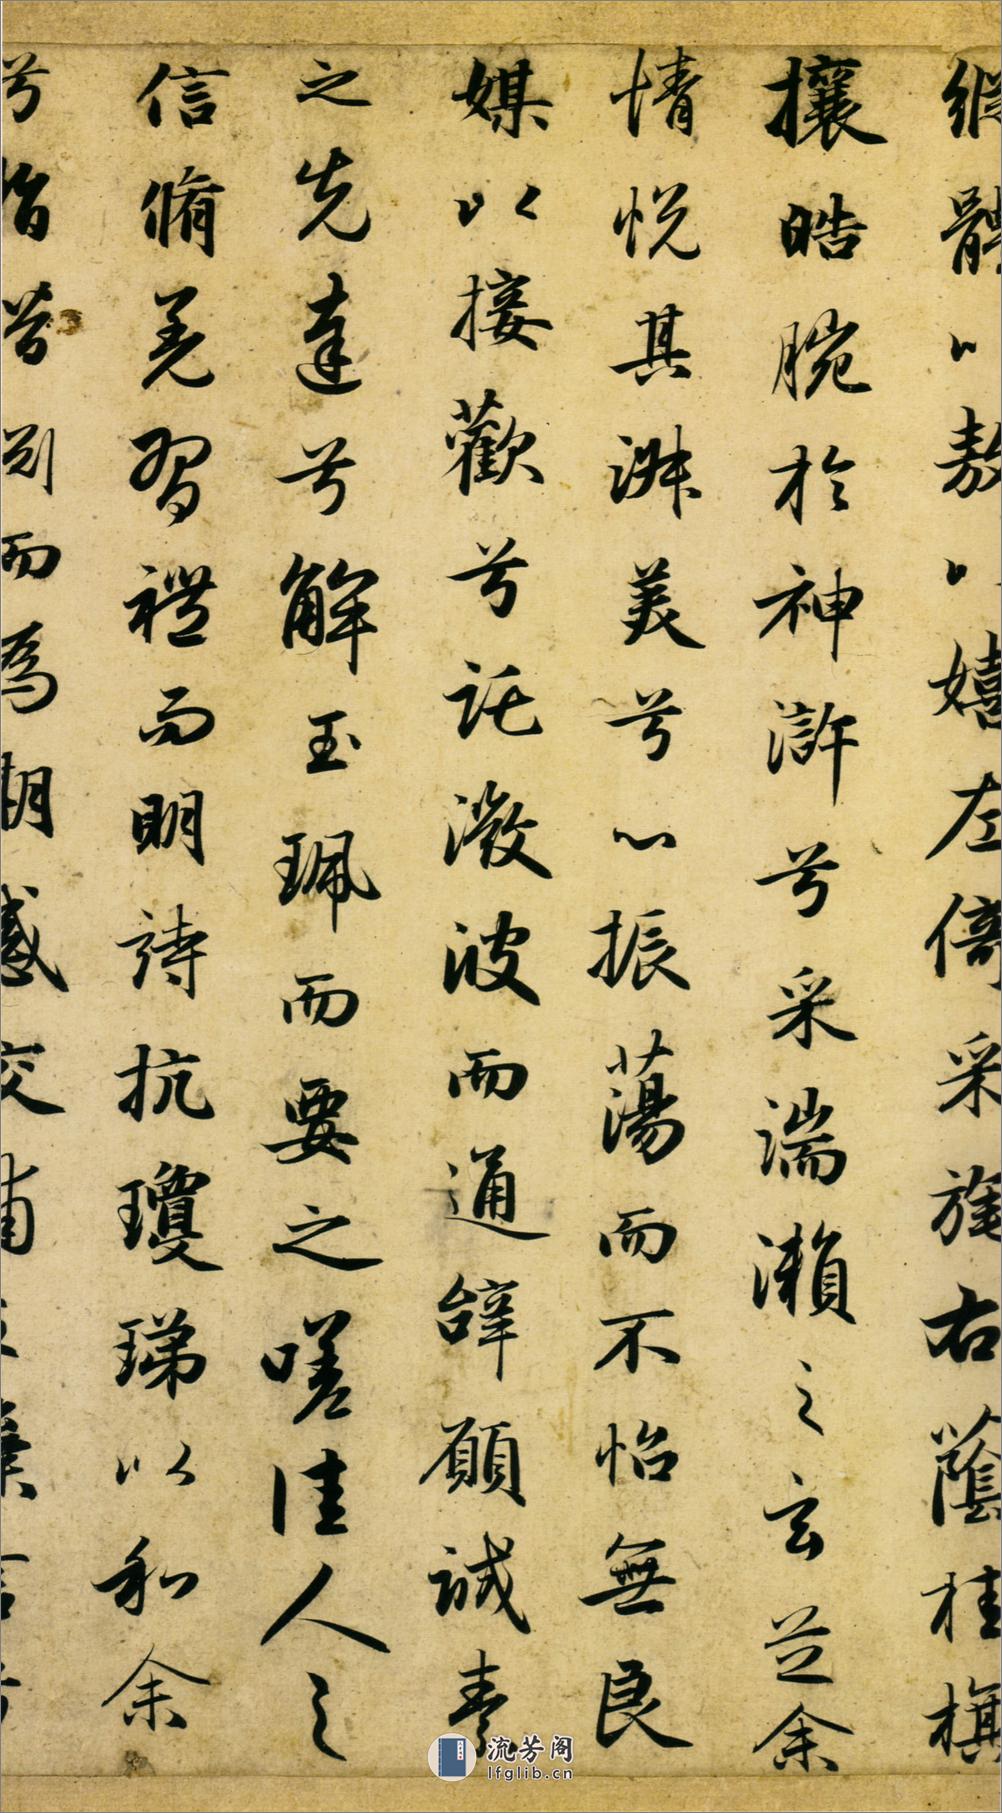 縱體以遨以嬉左倚采旄右蔭桂旗
攘皓腕於神滸兮采湍瀨之玄芝余
情悅其淑美兮心振蕩而不怡無良
媒以接歡兮託微波而通辭願誠素
之先達兮解玉珮而要之嗟佳人之
信脩羌習禮而明詩抗瓊珶以和余
兮指昔別而為期感交甫
流芳阁
lfglib.cn